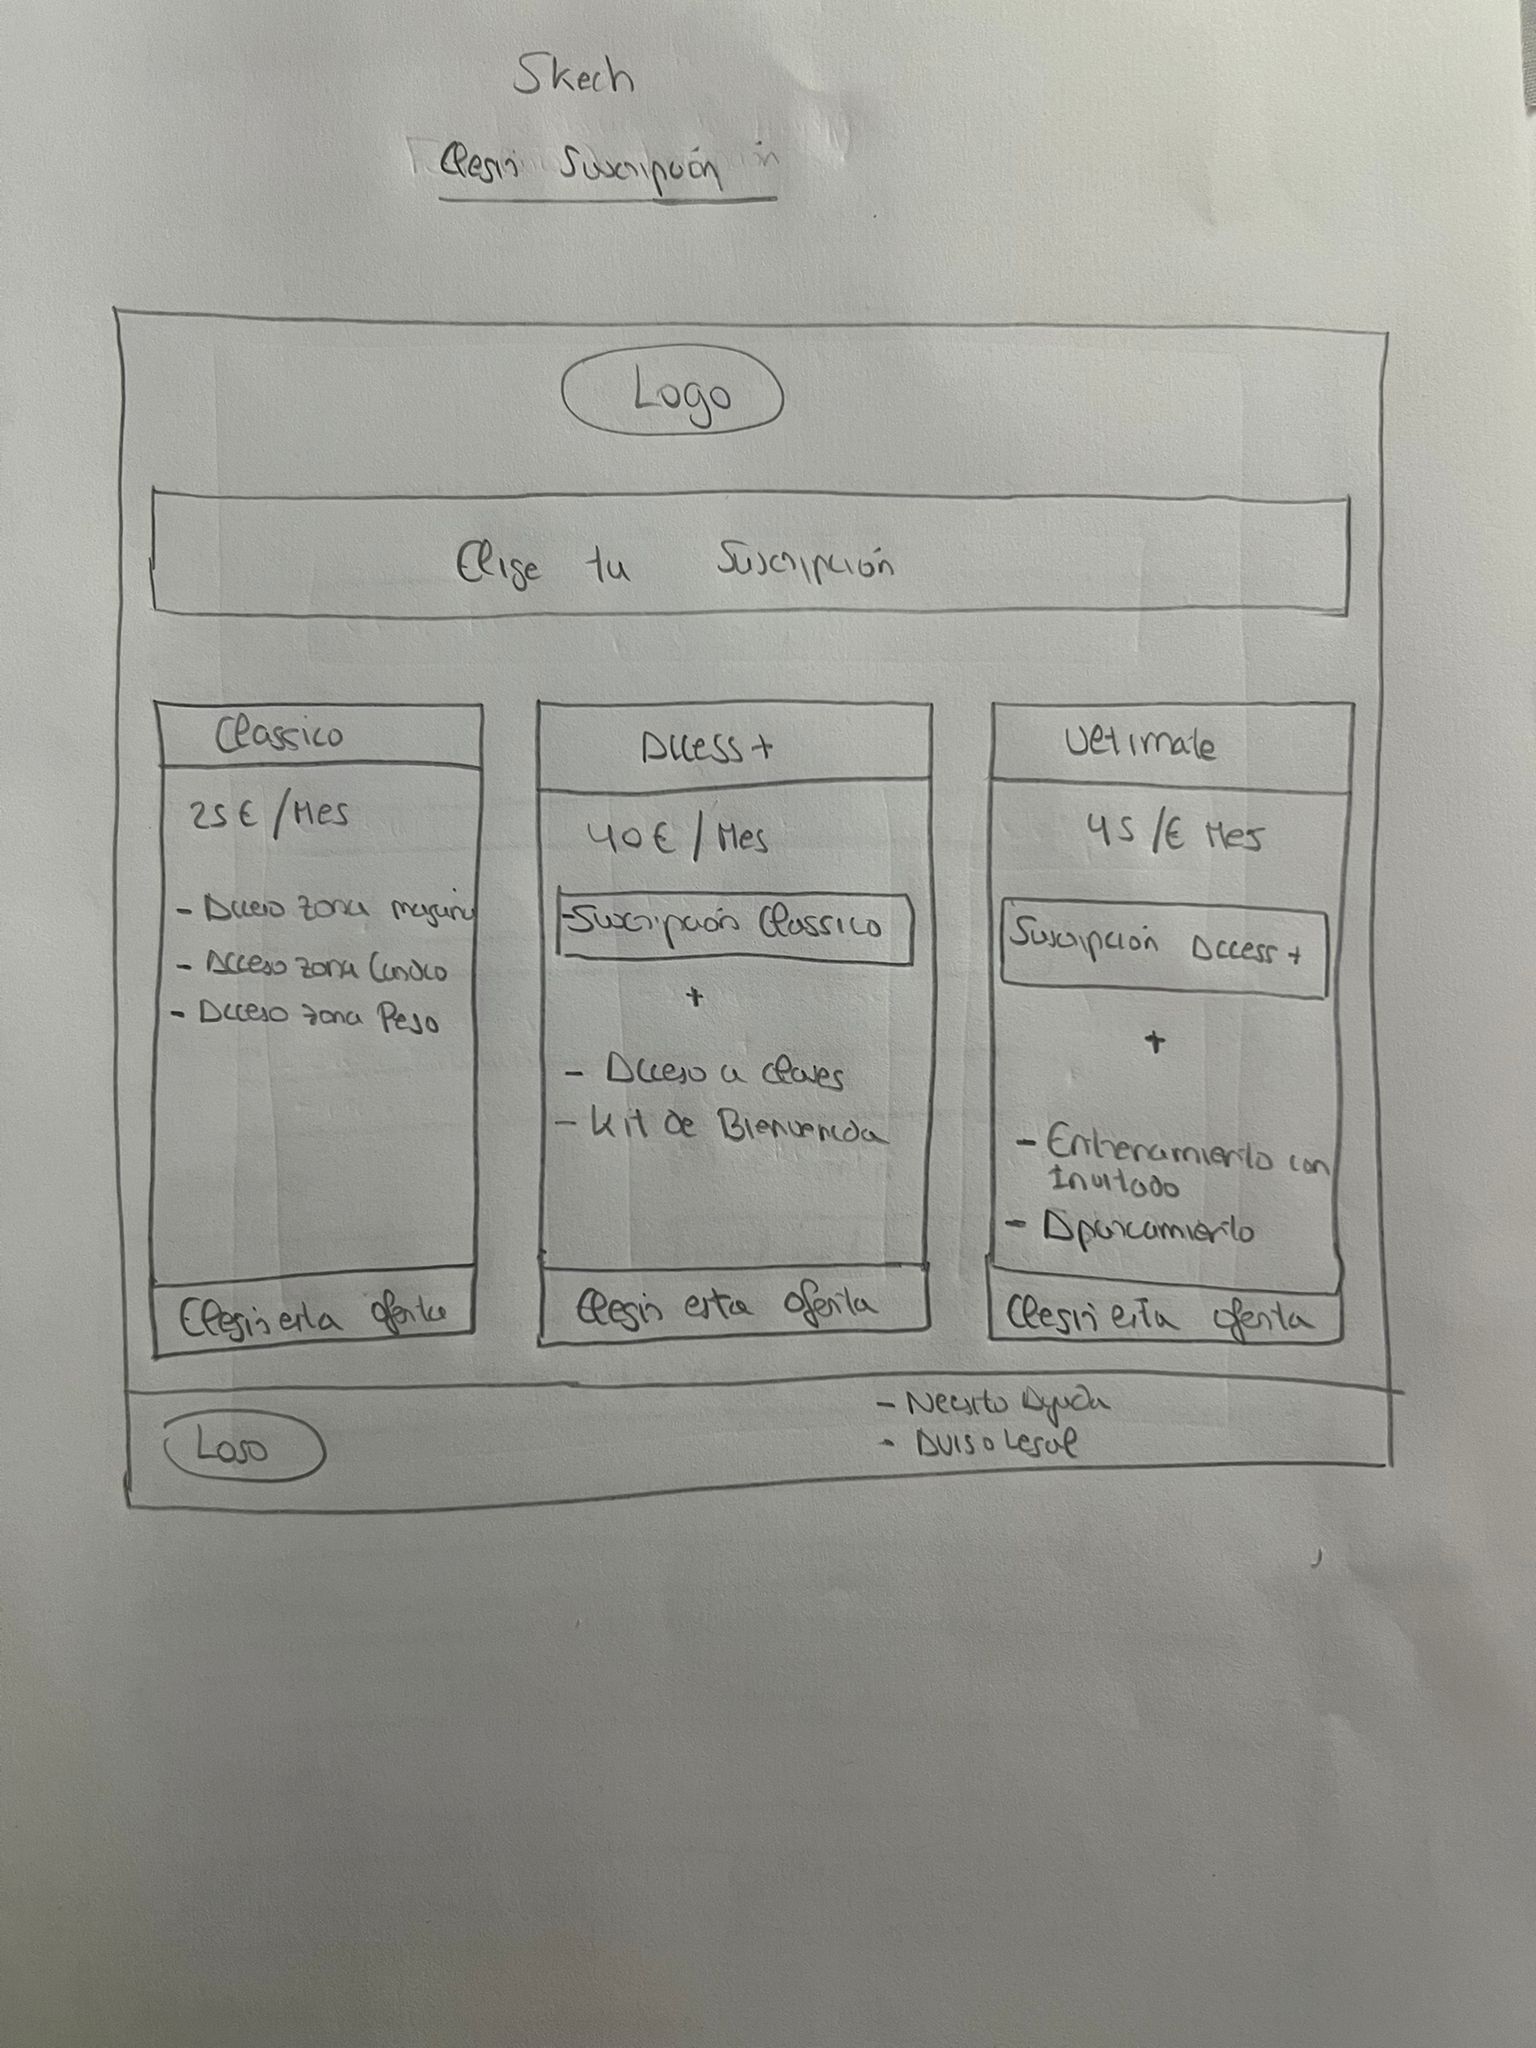 Skech
Elegir Suscripción
Logo
Elige tu Suscripción
Classico
25€/Mes
- Acceso zona maquina
- Acceso zona Cardio
- Acceso zona Peso
Elegir esta oferta
Access+
40€/Mes
- Suscripción Classico
+
- Acceso a clases
- Kit de Bienvenida
Elegir esta oferta
Ultimate
45/€ Mes
Suscripción Access+
+
- Entrenamiento con
Invitado
- Aparcamiento
Elegir esta oferta
Logo
- Necesito Ayuda
- Aviso Legal